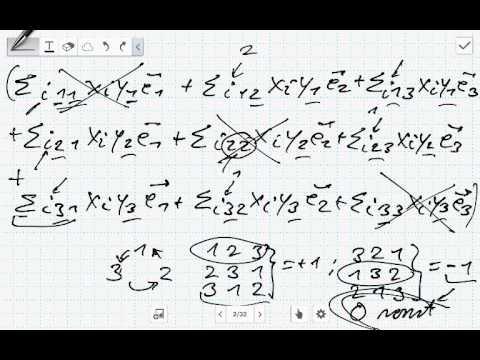 2
(Σi11 xi y1 e⃗1 + Σi12 xi y1 e⃗2 + Σi13 xi y1 e⃗3
+ Σi21 xi y2 e⃗1 + Σi22 xi y2 e⃗2 + Σi23 xi y2 e⃗3
+ Σi31 xi y3 e⃗1 + Σi32 xi y3 e⃗2 + Σi33 xi y3 e⃗3)
1
3 2
1 2 3
2 3 1
3 1 2
= +1 ;
3 2 1
1 3 2
2 1 3
= -1
0 sonst
2/32